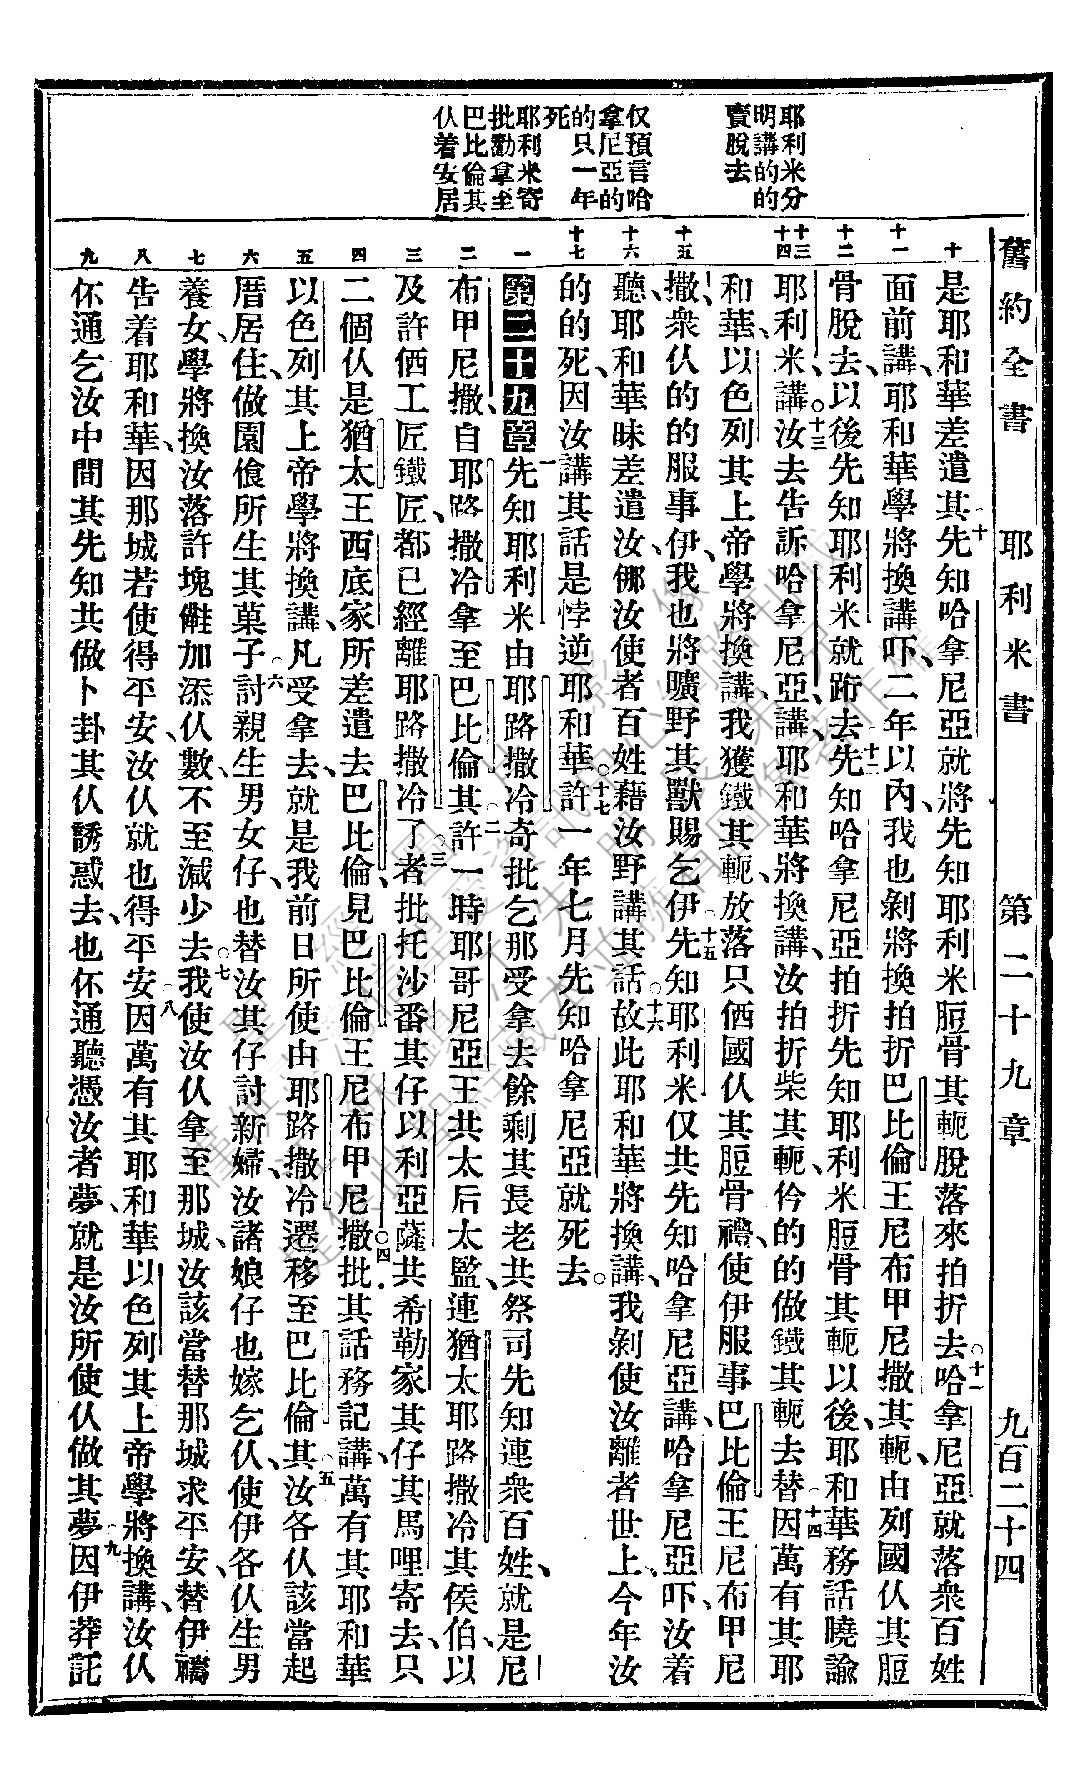 舊約全書 耶利米書 第二十九章 九百二十四
耶利米分
明講的的
賣脫去
仅預言哈
拿尼亞的
的只一年
死
耶利米寄
批勸拿至
巴比倫其
仄着安居
十 十一 十二 十三 十四 十五 十六 十七 一 二 三 四 五 六 七 八 九
是耶和華差遣其先知哈拿尼亞就將先知耶利米脰骨其軛脫落來拍折去○十一哈拿尼亞就落衆百姓
面前講、耶和華學將換講吓、二年以內、我也剝將換拍折巴比倫王尼布甲尼撒其軛、由列國仄其脰
骨脫去、以後先知耶利米就跔去○十二先知哈拿尼亞拍折先知耶利米脰骨其軛以後、耶和華務話曉諭
耶利米講○十三汝去告訴哈拿尼亞講、耶和華將換講、汝拍折柴其軛、仱的的做鐵其軛去替○十四因萬有其耶
和華以色列其上帝學將換講、我獲鐵其軛、放落只価國仄其脰骨、禮使伊服事巴比倫王尼布甲尼
撒、衆仄的的服事伊、我也將曠野其獸賜乞伊○十五先知耶利米仅共先知哈拿尼亞講、哈拿尼亞吓、汝着
聽、耶和華昧差遣汝、㑚汝使者百姓藉汝野講其話○十六故此耶和華將換講、我剝使汝離者世上、今年汝
的的死、因汝講其話是悖逆耶和華○十七許一年七月先知哈拿尼亞就死去○
第二十九章 一先知耶利米由耶路撒冷寄批乞那受拿去餘剩其長老共祭司先知連衆百姓、就是尼
布甲尼撒、自耶路撒冷拿至巴比倫其○二許一時耶哥尼亞王共太后太監連猶太耶路撒冷其侯伯、以
及許価工匠鐵匠、都已經離耶路撒冷了○三者批托沙番其仔以利亞薩共希勒家其仔其馬哩寄去、只
二個仄是猶太王西底家所差遣去巴比倫、見巴比倫王尼布甲尼撒○四批其話務記講、萬有其耶和華
以色列其上帝學將換講、凡受拿去、就是我前日所使由耶路撒冷遷移至巴比倫其○五汝各仄該當起
厝居住、做園飡所生其菓子○六討親生男女仔、也替汝其仔討新婦、汝諸娘仔也嫁乞仄、使伊各仄生男
養女、學將換汝落許塊𠆧加添仄數、不至減少去○七我使汝仄拿至那城、汝該當替那城求平安、替伊禱
告着耶和華、因那城若使得平安、汝仄就也得平安○八因萬有其耶和華以色列其上帝學將換講、汝仄
伓通乞汝中間其先知共做卜卦其仄誘惑去、也伓通聽憑汝者夢、就是汝所使仄做其夢○九因伊莽託